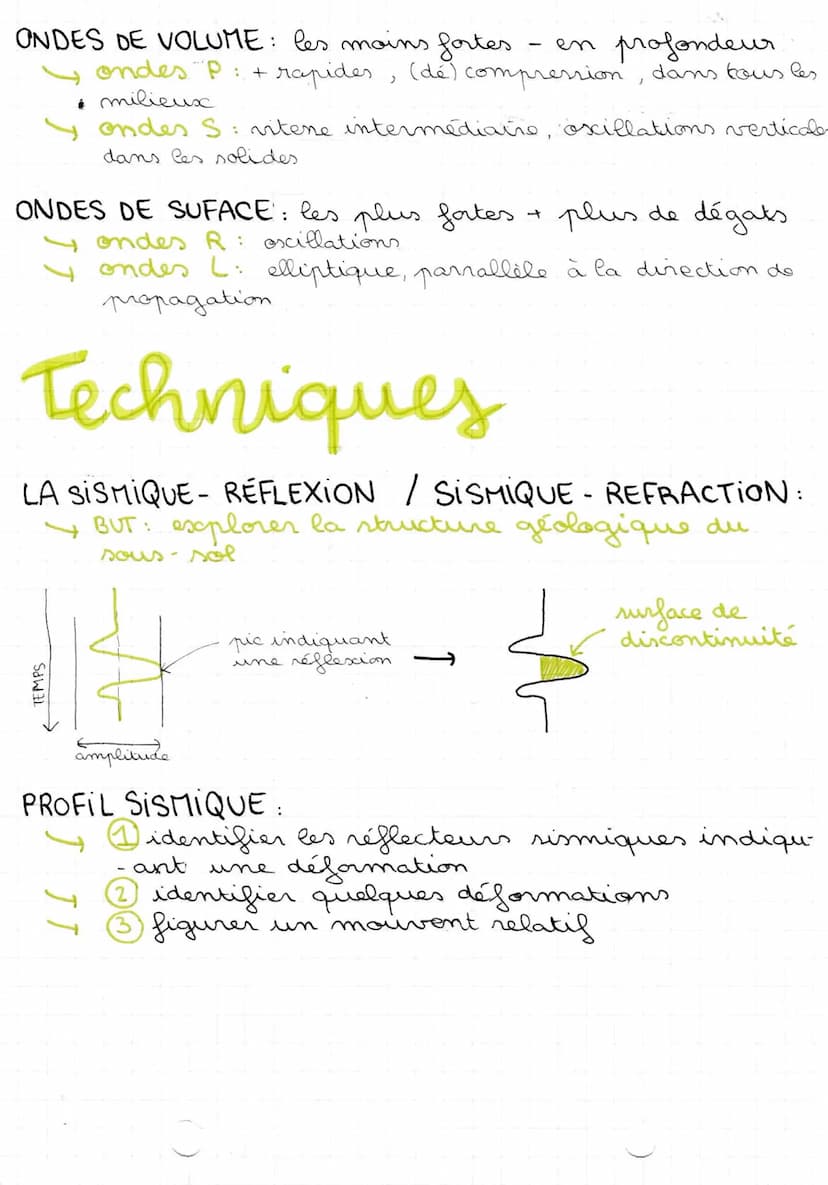 ONDES DE VOLUME : les moins fortes - en profondeur
ondes P : + rapides, (dé)compression, dans tous les
milieux
ondes S : vitesse intermédiaire, oscillations verticale
dans les solides
ONDES DE SUFACE : les plus fortes + plus de dégats
ondes R : oscillations
ondes L : elliptique, parrallèle à la direction de
propagation
Techniques
LA SISMIQUE - RÉFLEXION / SISMIQUE - REFRACTION :
BUT : explorer la structure géologique du
sous-sol
TEMPS
pic indiquant
une réflexion
surface de
discontinuité
amplitude
PROFIL SISMIQUE :
1 identifier les réflecteurs sismiques indiqu-
-ant une déformation
2 identifier quelques déformations
3 figurer un mouvent relatif